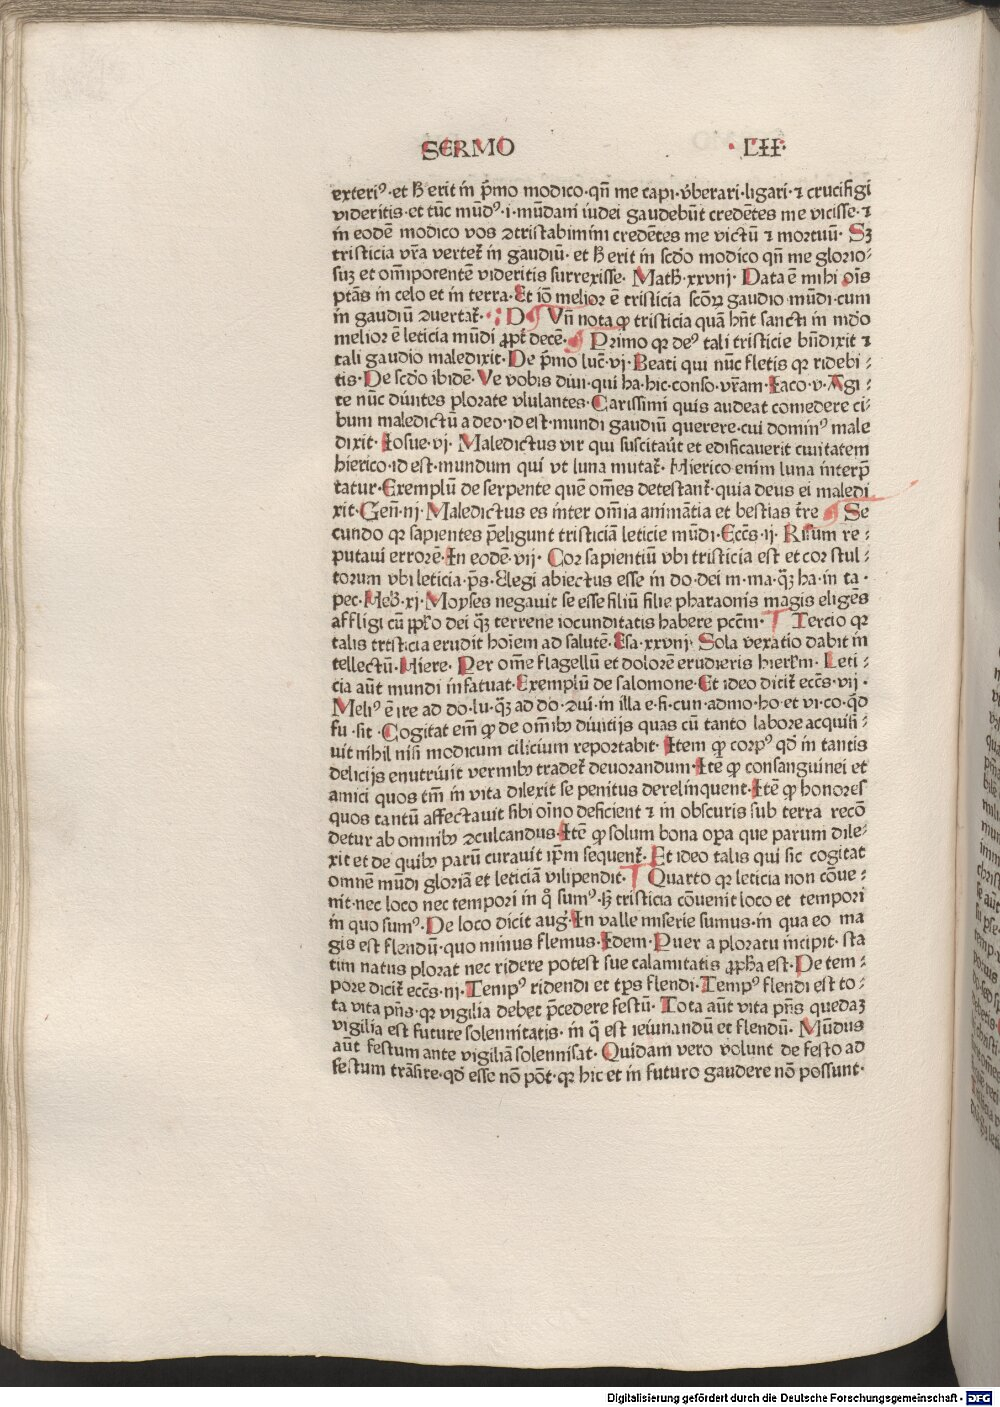 SERMO ·LII·
exteri⁹·et ħ erit in p̄mo modico·qn̄ me capi·v̄berari·ligari·⁊ crucifigi
videritis·et tūc mūd⁹·i·mūdani iudei gaudebūt credētes me vicisse·⁊
in eodē modico vos ꝯtristabimini credētes me victū ⁊ mortuū· Sꝫ
tristicia vr̄a vertet̄ in gaudiū· et ħ erit in scd̄o modico qn̄ me glorio-
suꝫ et om̄ipotentē videritis surrexisse· Math̄·xxviij· Data ē mihi oīs
ptās in celo et in terra·Et iō melior ē tristicia scōꝝ gaudio mūdi·cum
in gaudiū ꝯuertat̄· D Vn̄ nota ꝙ tristicia quā hn̄t sancti in mūdo
melior ē leticia mūdi ꝓpt̄ decē· Primo qꝛ de⁹ tali tristicie bn̄dixit ⁊
tali gaudio maledixit·De p̄mo luc̄·vj·Beati qui nūc fletis qꝛ ridebi⸗
tis·De scd̄o ibidē·Ve vobis diui·qui ha·hic·conso·vr̄am·Iaco·v·Agi⸗
te nūc diuites plorate vlulantes·Carissimi quis audeat comedere ci⸗
bum maledictū a deo·id est·mundi gaudiū querere·cui domin⁹ male
dixit·Iosue·vj· Maledictus vir qui suscitaūt et edificauerit ciuitatem
hierico·id est·mundum qui vt luna mutat̄·Hierico enim luna interp̄
tatur·Exemplū de serpente quē om̄es detestant̄·quia deus ei maledi
xit·Gen̄·iij·Maledictus es inter om̄ia animātia et bestias t̄re Se
cundo qꝛ sapientes p̄eligunt tristiciā leticie mūdi·Eccs̄·ij· Risum re⸗
putaui errorē·In eodē·vij· Cor sapientiū vbi tristicia est et cor stul⸗
torum vbi leticia·ps̄·Elegi abiectus esse in do·dei m·ma·q̄ꝫ ha·in ta·
pec·Heb̄·xj·Moyses negauit se esse filiū filie pharaonis magis eligēs
affligi cū ppl̄o dei q̄ꝫ terrene iocunditatis habere pccm̄· Tercio qꝛ
talis tristicia erudit hoiem ad salutē·Esa·xxviij· Sola vexatio dabit in
tellectū·Hiere· Per om̄e flagellū et dolorē erudieris hierl̄m· Leti⸗
cia aūt mundi infatuat·Exemplū de salomone·Et ideo dicit̄ eccs̄·vij·
Meli⁹ ē ire ad do·lu·q̄ꝫ ad do·ꝯui·in illa e·fi·cun·admo·ho·et vi·co·qd̄
fu·sit·Cogitat em̄ ꝙ de om̄ibꝰ diuitijs quas cū tanto labore acquisi⸗
uit nihil nisi modicum cilicium reportabit· Item ꝙ corp⁹ qd̄ in tantis
delicijs enutriuit vermibꝰ tradet̄ deuorandum·Itē ꝙ consanguinei et
amici quos tm̄ in vita dilexit se penitus derelinquent·Itē ꝙ honores
quos tantū affectauit sibi oīno deficient ⁊ in obscuris sub terra recō
detur ab omnibꝰ ꝯculcandus·Itē ꝙ solum bona opa que parum dile⸗
xit et de quibꝰ parū curauit ip̄m sequent̄· Et ideo talis qui sic cogitat
omnē mūdi gloriā et leticiā vilipendit· Quarto qꝛ leticia non cōue⸗
nit·nec loco nec tempori in q̊ sum⁹·sꝫ tristicia cōuenit loco et tempori
in quo sum⁹·De loco dicit auḡ·In valle miserie sumus·in qua eo ma
gis est flendū·quo minus flemus·Idem·Puer a ploratu incipit· sta
tim natus plorat nec ridere potest sue calamitatis ꝓph̄a est·De tem⸗
pore dicit̄ eccs̄·iij·Temp⁹ ridendi et tp̄s flendi·Temp⁹ flendi est to⸗
ta vita pn̄s·qꝛ vigilia debet p̄cedere festū· Tota aūt vita pn̄s quedaꝫ
vigilia est future solennitatis· in q̄ est ieiunandū et flendū· Mūdus
aūt festum ante vigiliā solennisat· Quidam vero volunt de festo ad
festum trāsire·qd̄ esse nō pōt·qꝛ hic et in futuro gaudere nō possunt·
Digitalisierung gefördert durch die Deutsche Forschungsgemeinschaft - DFG